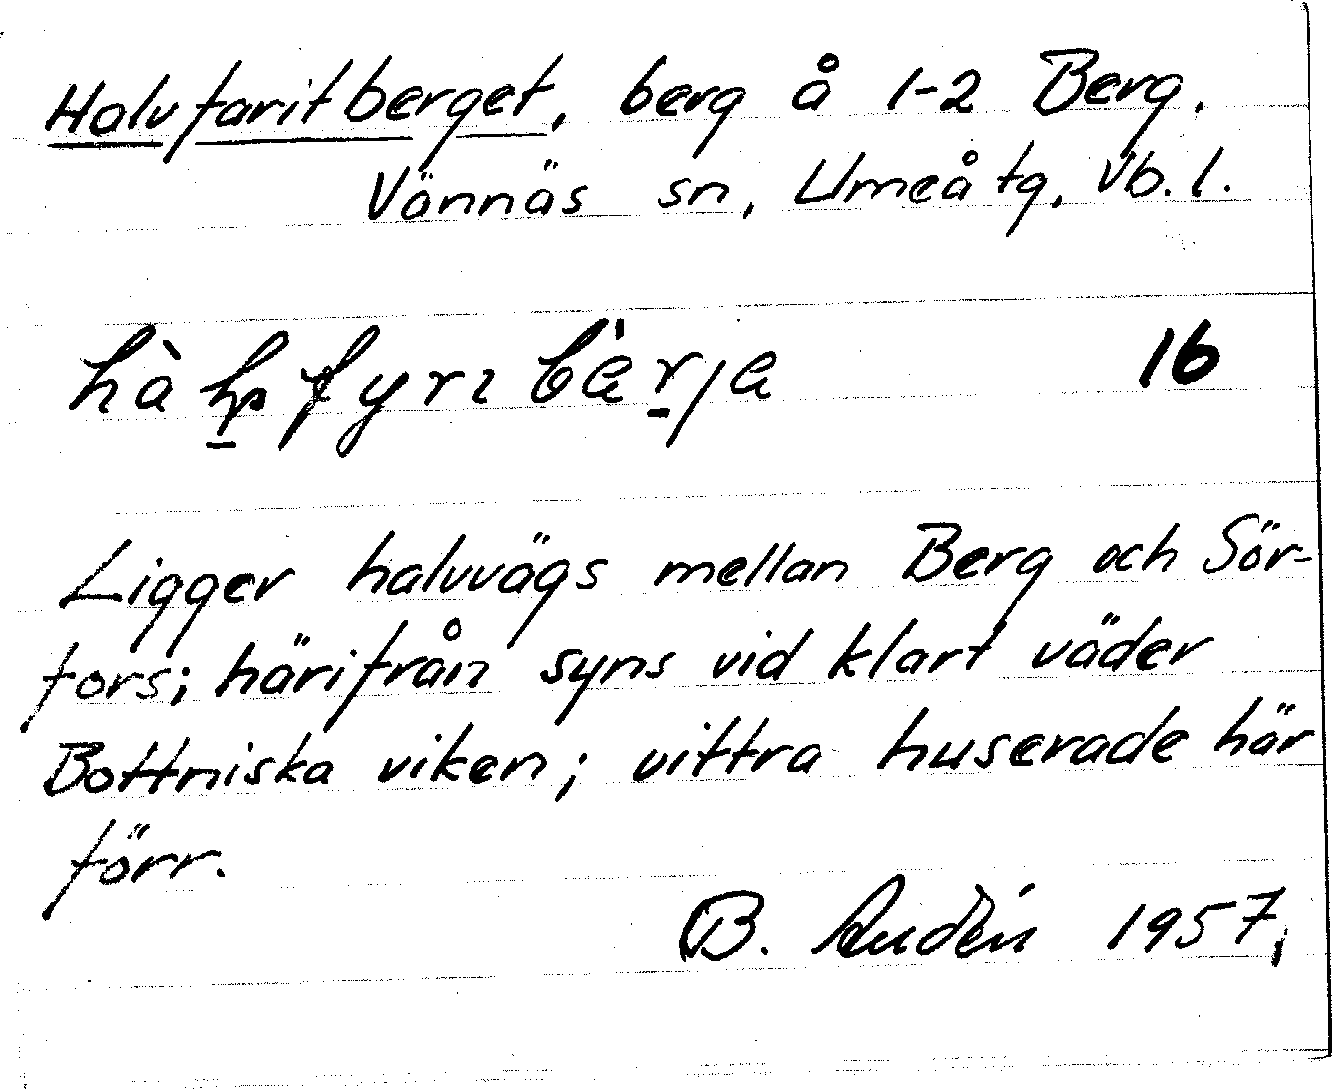 Halvfaritberget, berg å 1-2 Berg.
Vännäs sn, Umeå tg, Vb. l.
16
Ligger halvvägs mellan Berg och Sör-
fors; härifrån syns vid klart väder
Bottniska viken; vittra huserade här
förr.
B. Audén 1957.